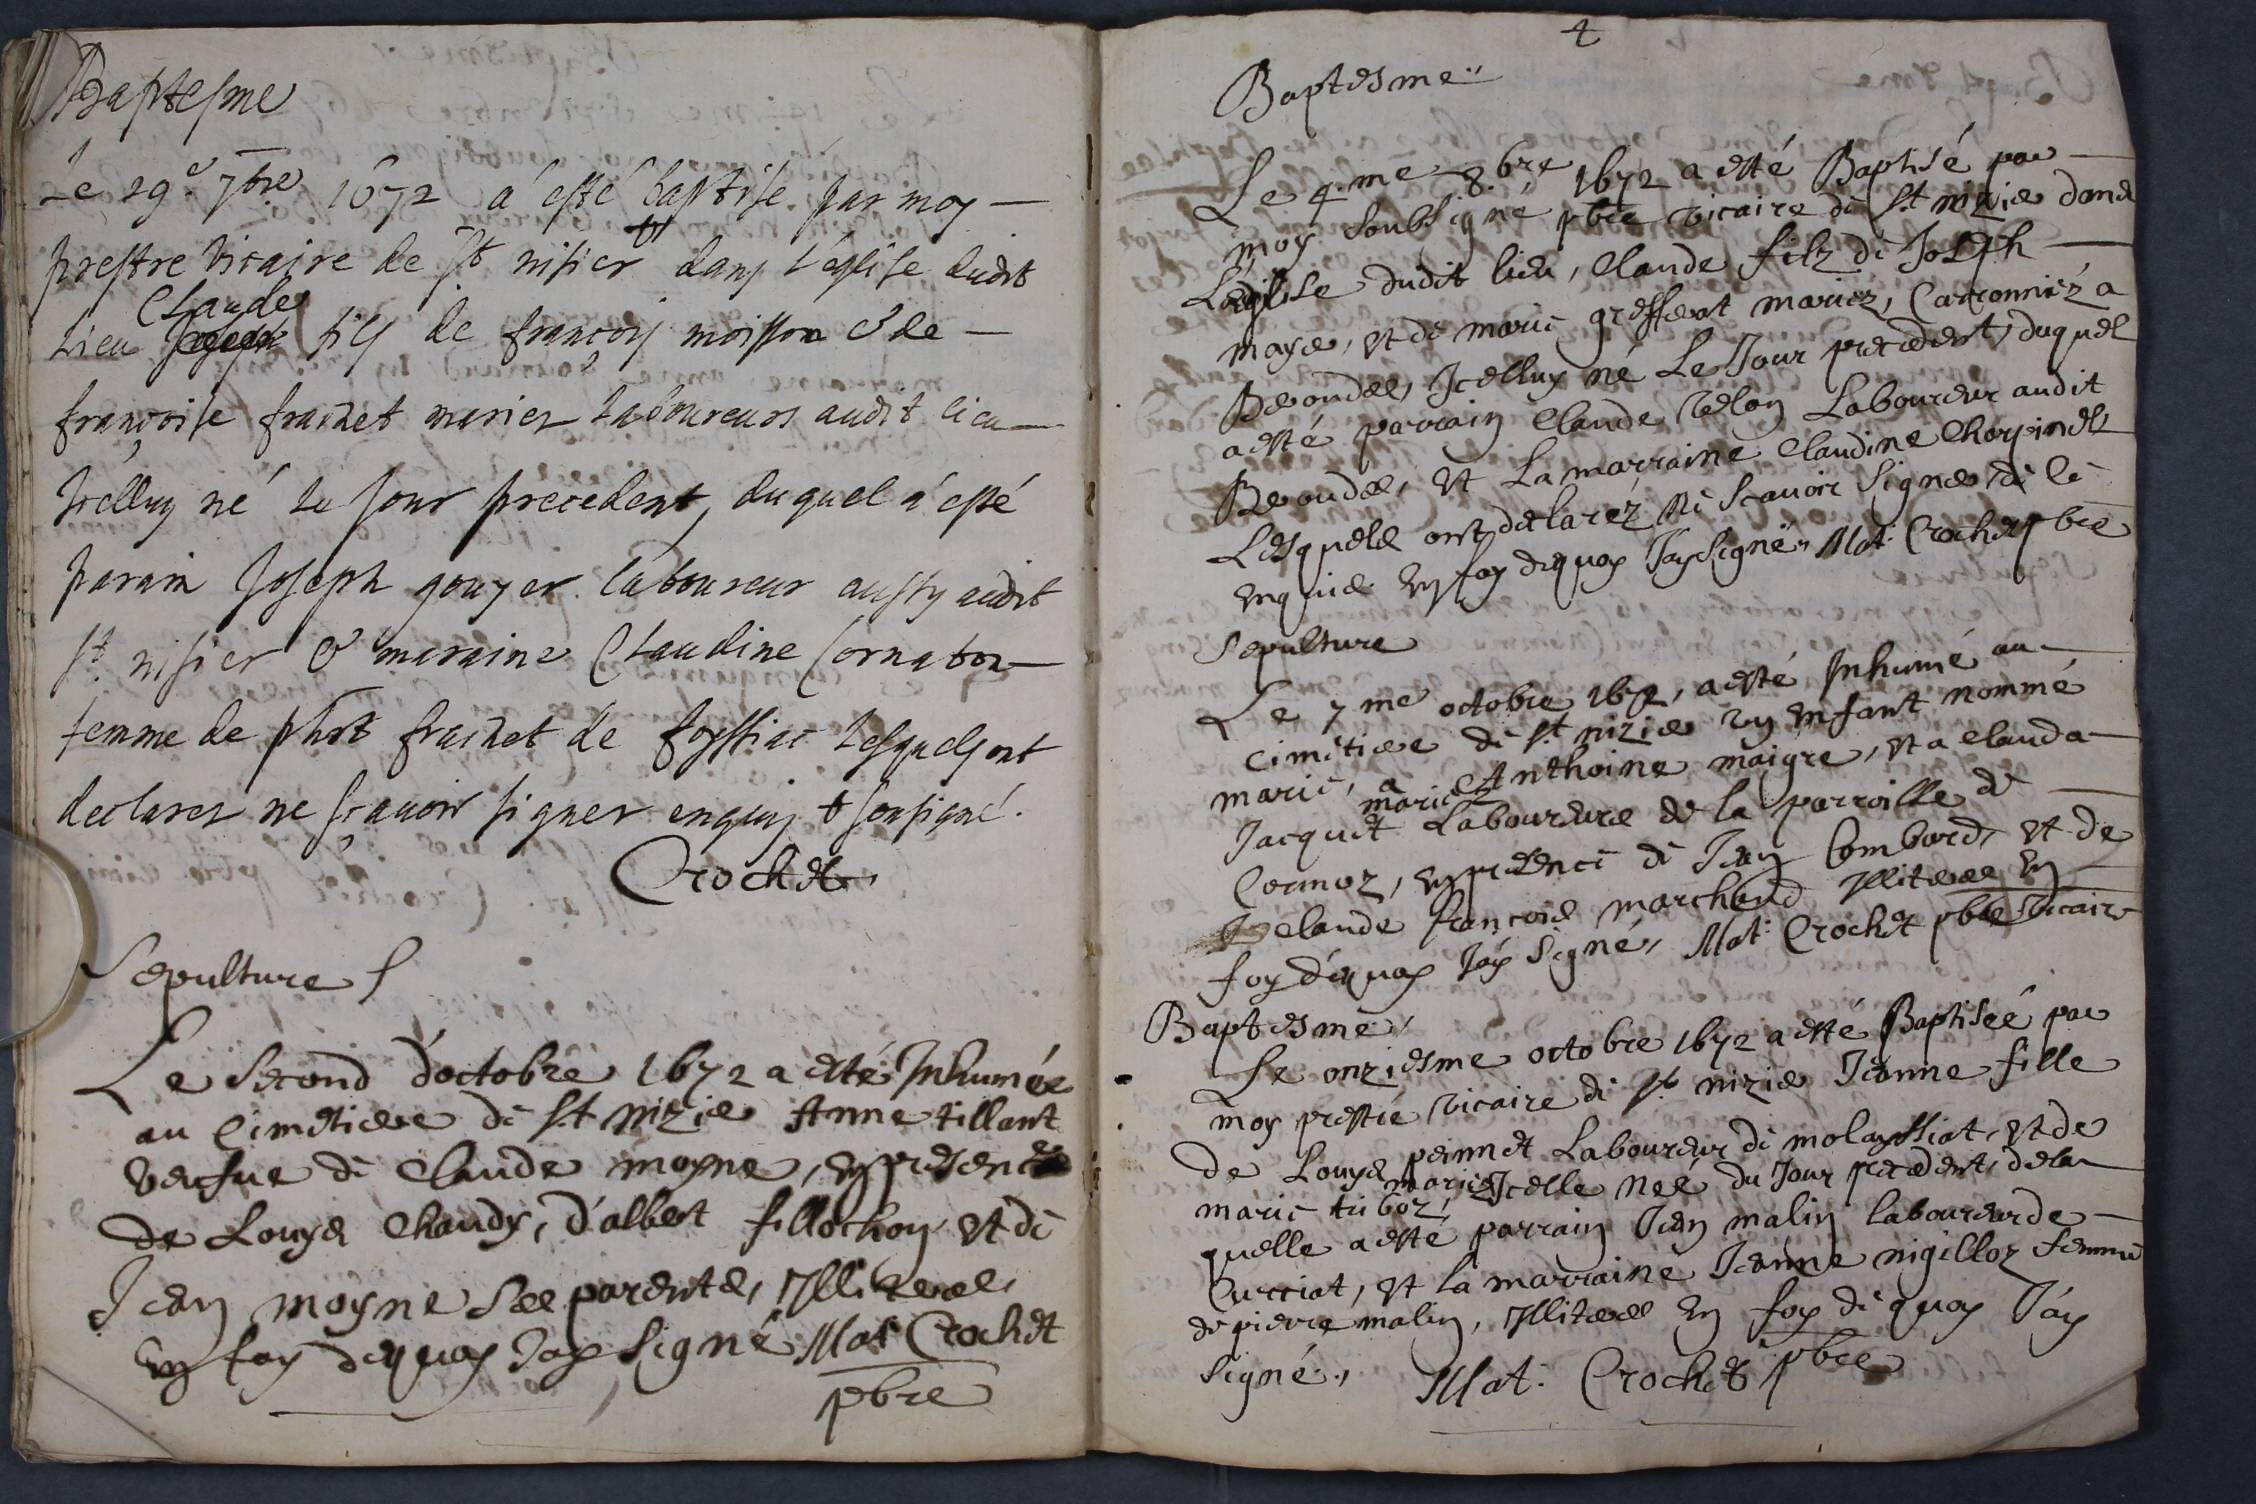 Baptesme
Le 29.e 7bre 1672 a esté baptise par moy
prestre vicaire de st nisier dans l'eglise dudit
Claude
lieu Joseph fils de françois moisson & de
françoise frachet mariez laboureurs audit lieu
icelluy né le jour precedent, duquel a esté
parain Joseph gouyer laboureur aussy audit
st. nisier & maraine Claudine Cornaton
femme de phbt frachet de foyssiat lesquels ont
declarez ne sçavoir signer enquis & soussigné.
Crochet
Sepulture
Le Second d'octobre 1672 a esté Inhumée
au Cimetiere de st nizier Anne tillant
vefue de Claude moyne, en presence
de Louys Chaudy, d'albert fillochon et de
Jean moyne Ses parents, Illiteres,
en foy dequoy Jay Signé Mat Crochet
pbre
4
Baptesme
Le 4.me 8.bre 1672 a esté Baptisé par
moy Soubsigné pbre vicaire de st nizier dans
L'eglise dudit lieu, Claude filz de Joseph
maye, et de marie greffeat mariez, Carronniez a
Beoudes, Icelluy né Le Jour precedent, duquel
a esté parrain Claude velon Laboureur audit
Beoudes, et La marraine Claudine Charpinet
Lesquels ont declarez Ne Scauoir Signer de ce
enquis en foy dequoy Jay Signé Mat: Crochet pbre
Sepulture
Le 7me octobre 1672, a esté Inhumé au
cimetiere de st nizier un enfant nommé
marie, a Anthoine maigre, et a clauda
mariez
Jacquet Laboureurs de la parroisse de
Cormoz, en presence de Jean Combard, et de
claude françois marchand Illiteres En
foy dequoy Jay Signé, Mat: Crochet pbre Vicaire
Baptesme,
Le onziesme octobre 1672 a esté Baptisée par
moy prestre vicaire de st. nizier Jeanne fille
de Louys peinnet Laboureur de molayssiat, et de
mariez
marie triboz, Icelle Neé du Jour precedent, de la
quelle a esté parrain Jean malin laboureur de
Curciat, et la marraine Jeanne nigilloz femme
de pierre malin, Illiteres En foy de quoy J'ay
signé., Mat: Crochet pbre